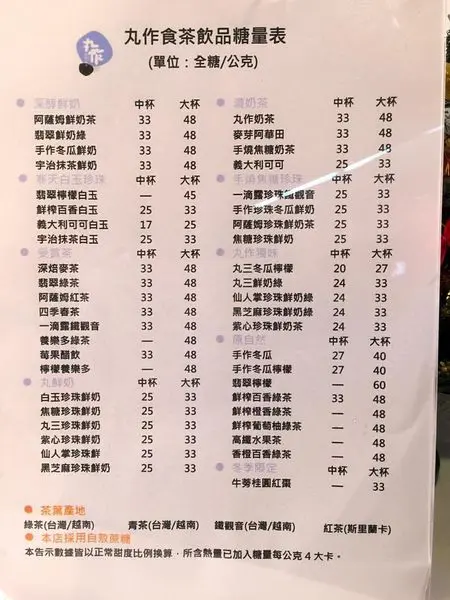 丸作
丸作食茶飲品糖量表
(單位：全糖/公克)
深醇鮮奶 中杯 大杯
阿薩姆鮮奶茶 33 48
翡翠鮮奶綠 33 48
手作冬瓜鮮奶 33 48
宇治抹茶鮮奶 33 48
寒天白玉珍珠 中杯 大杯
翡翠檸檬白玉 — 45
鮮榨百香白玉 25 33
義大利可可白玉 17 25
宇治抹茶白玉 25 33
愛喝茶 中杯 大杯
深焙麥茶 33 48
翡翠綠茶 33 48
阿薩姆紅茶 33 48
四季春茶 33 48
一滴露鐵觀音 33 48
養樂多綠茶 — 48
莓果醋飲 33 48
檸檬養樂多 — 48
丸鮮奶 中杯 大杯
白玉珍珠鮮奶 25 33
焦糖珍珠鮮奶 25 33
丸三珍珠鮮奶 25 33
紫心珍珠鮮奶 25 33
仙人掌珍珠鮮 25 33
黑芝麻珍珠鮮奶 25 33
濃奶茶 中杯 大杯
丸作奶茶 33 48
麥芽阿華田 33 48
手燒焦糖奶茶 33 48
義大利可可 25 33
手燒焦糖珍珠 中杯 大杯
一滴露珍珠鐵觀音 25 33
手作珍珠冬瓜鮮奶 25 33
阿薩姆珍珠鮮奶茶 25 33
焦糖珍珠鮮奶 25 33
丸作獨味 中杯 大杯
丸三冬瓜檸檬 20 27
丸三鮮奶綠 24 33
仙人掌珍珠鮮奶綠 24 33
黑芝麻珍珠鮮奶綠 24 33
紫心珍珠鮮奶茶 24 33
原自然 中杯 大杯
手作冬瓜 27 40
手作冬瓜檸檬 27 40
翡翠檸檬 — 60
鮮榨百香綠茶 33 48
鮮榨橙香綠茶 — 48
鮮榨葡萄柚綠茶 — 48
高纖水果茶 — 48
香橙百香綠茶 — 48
冬季限定 中杯 大杯
牛蒡桂圓紅棗 — 33
茶葉產地
綠茶(台灣/越南) 青茶(台灣/越南) 鐵觀音(台灣/越南) 紅茶(斯里蘭卡)
本店採用自熬蔗糖
本告示數據皆以正常甜度比例換算，所含熱量已加入糖量每公克 4 大卡。